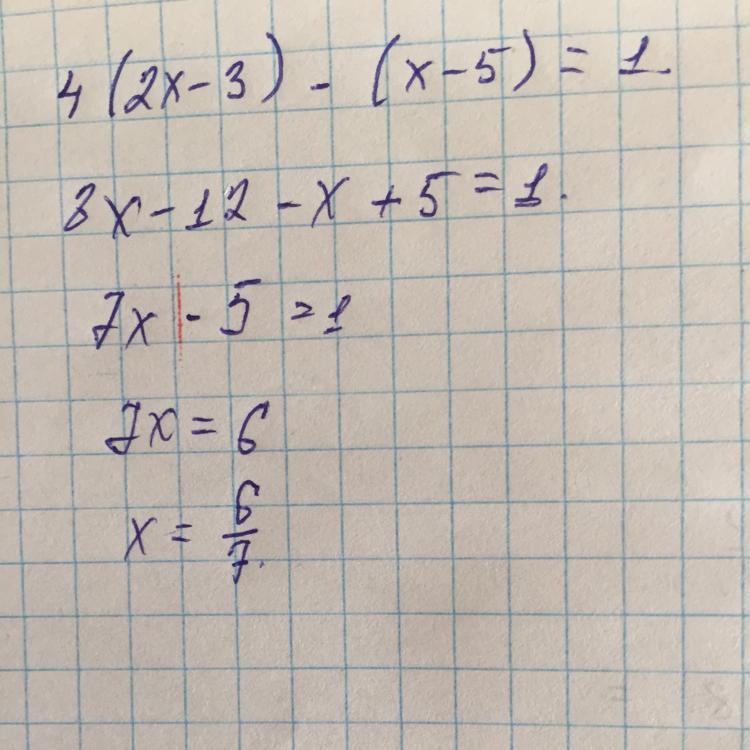 4(2x-3) - (x-5) = 1.
8x-12-x+5=1.
7x-5=1
7x=6
x = 6/7.